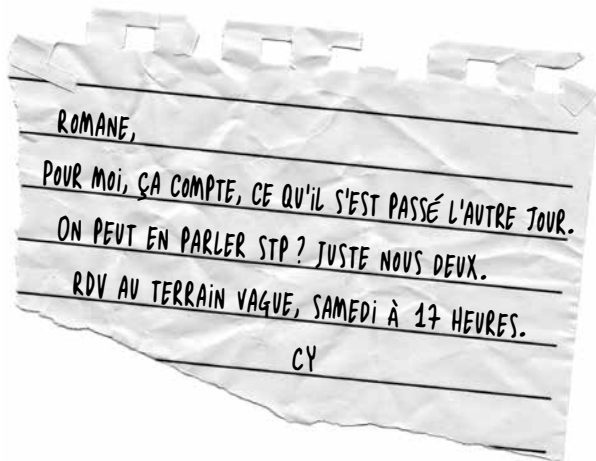 ROMANE,
POUR MOI, ÇA COMPTE, CE QU'IL S'EST PASSÉ L'AUTRE JOUR.
ON PEUT EN PARLER STP ? JUSTE NOUS DEUX.
RDV AU TERRAIN VAGUE, SAMEDI À 17 HEURES.
CY